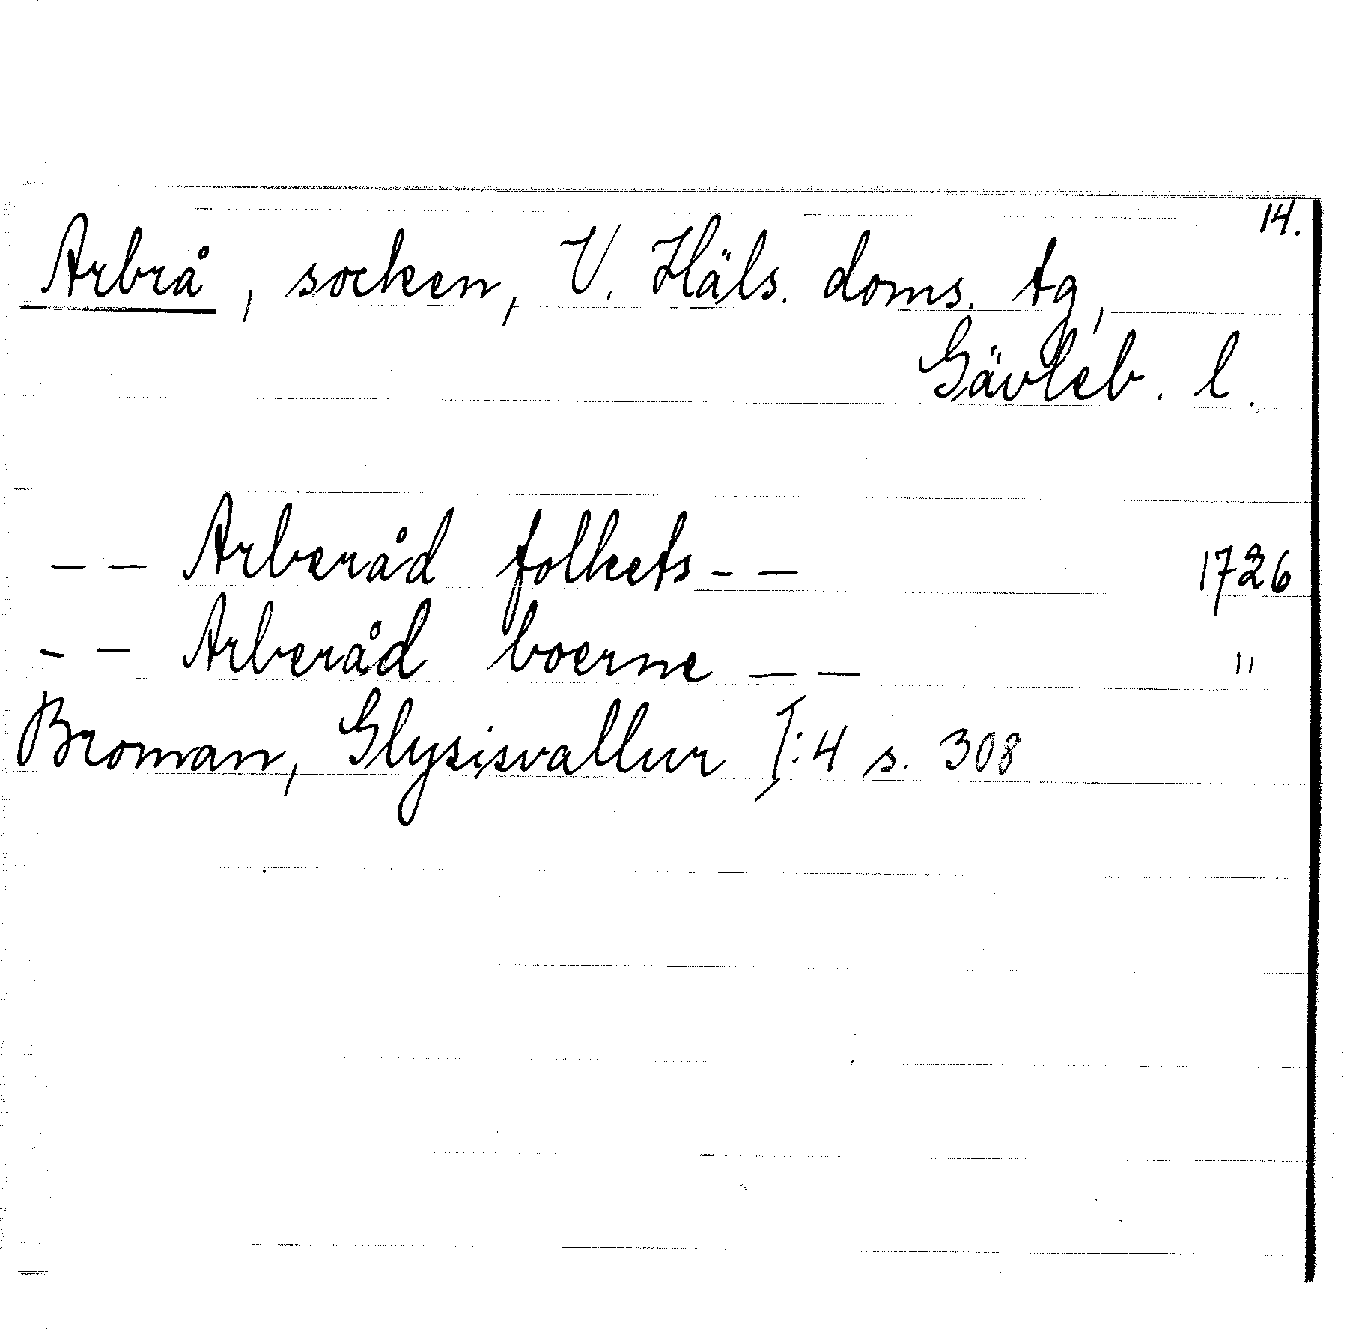 14.
Arbrå, socken, V. Häls. doms. tg,
Gävleb. l.
— — Arberåd folkets — — 1726
— — Arberåd boerne — — "
Broman, Glysisvallur I:4 s. 308